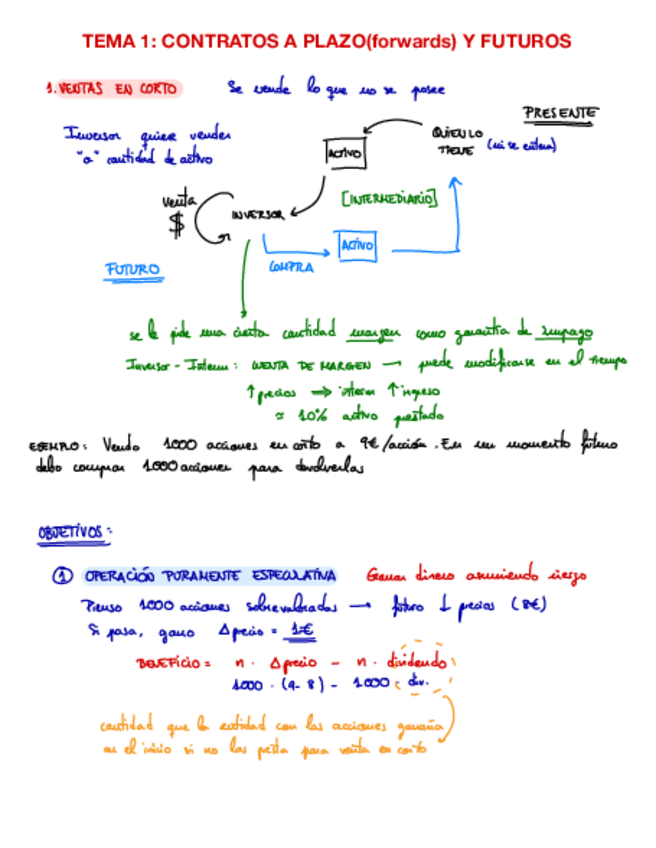 TEMA 1: CONTRATOS A PLAZO(forwards) Y FUTUROS
1. VENTAS EN CORTO Se vende lo que no se posee
PRESENTE
Inversor quiere vender
"a" cantidad de activo
ACTIVO
QUIEN LO
TIENE (ni se entera)
venta
$
INVERSOR
[INTERMEDIARIO]
ACTIVO
COMPRA
FUTURO
se le pide una cierta cantidad margen como garantía de impago
Inversor - Interm: CUENTA DE MARGEN → puede modificarse en el tiempo
↑ precios ⇒ interm ↑ ingreso
≈ 10% activo prestado
EJEMPLO: Vendo 1000 acciones en corto a 9€/acción. En un momento futuro
debo comprar 1000 acciones para devolverlas
OBJETIVOS:
① OPERACIÓN PURAMENTE ESPECULATIVA Ganar dinero asumiendo riesgo
Pienso 1000 acciones sobrevaloradas → futuro ↓ precios (8€)
Si pasa, gano Δprecio = 1€
BENEFICIO = n · Δprecio - n · dividendo
1000 · (9-8) - 1000 · div.
cantidad que la entidad con las acciones ganaría
en el inicio si no las presta para venta en corto